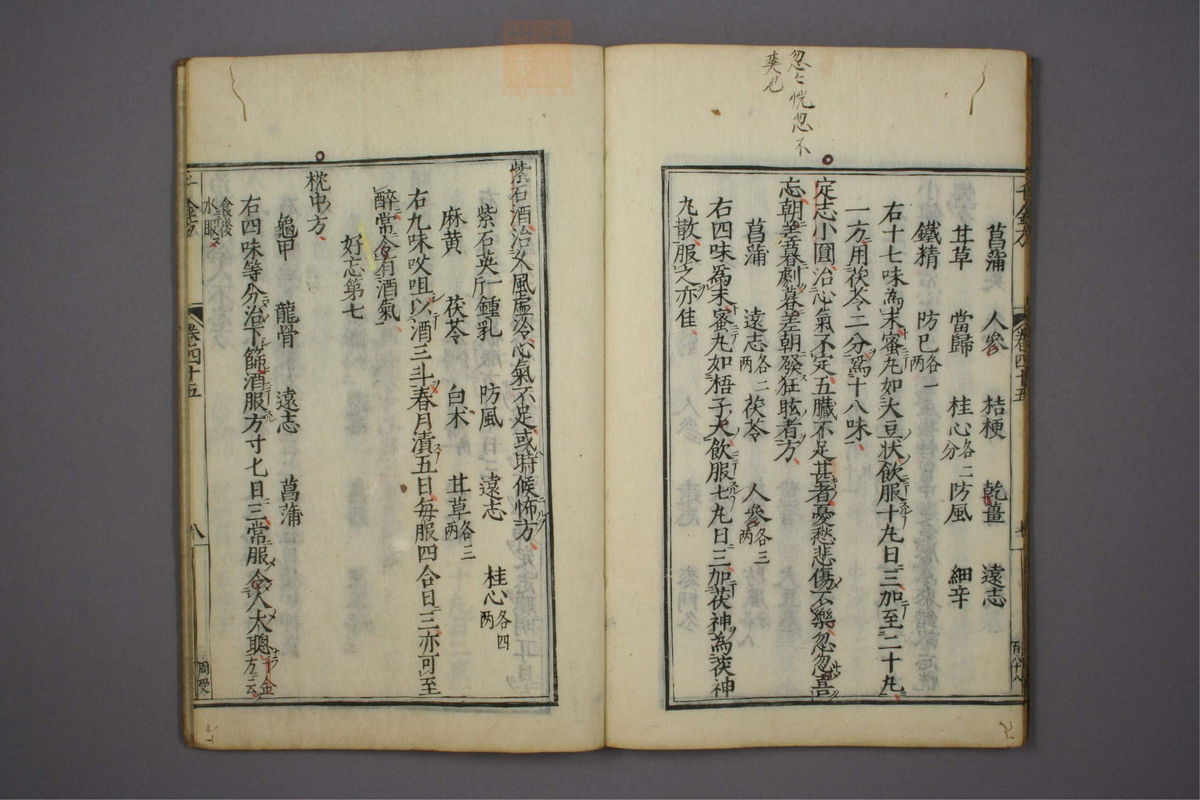 忽々恍忽不
爽也
菖蒲 人參 桔梗 乾薑 遠志
甘草 當歸 桂心各二分 防風 細辛
鐵精 防巳各一兩
右十七味為末蜜丸如大豆状飲服十丸日三加至二十丸
一方用茯苓二分為十八味
定志小圓治心氣不定五臓不足甚者憂愁悲傷不樂忽忽喜
忘朝差暮劇暮差朝發狂眩者方
菖蒲 遠志各二兩 茯苓 人參各三兩
右四味為末蜜丸如梧子大飲服七丸日三加茯神為茯神
丸散服之亦佳
紫石酒治久風虚冷心氣不足或時候怖方
紫石英一斤 鍾乳 防風 遠志 桂心各四兩
麻黄 茯苓 白朮 甘草各三兩
右九味㕮咀以酒三斗春月漬五日每服四合日三亦可至
醉常令有酒氣
好忘第七
枕中方
龜甲 龍骨 遠志 菖蒲
右四味等分治下篩酒服方寸七日三常服令人大聰千金方云
食後水服
千金方 卷四十五 八